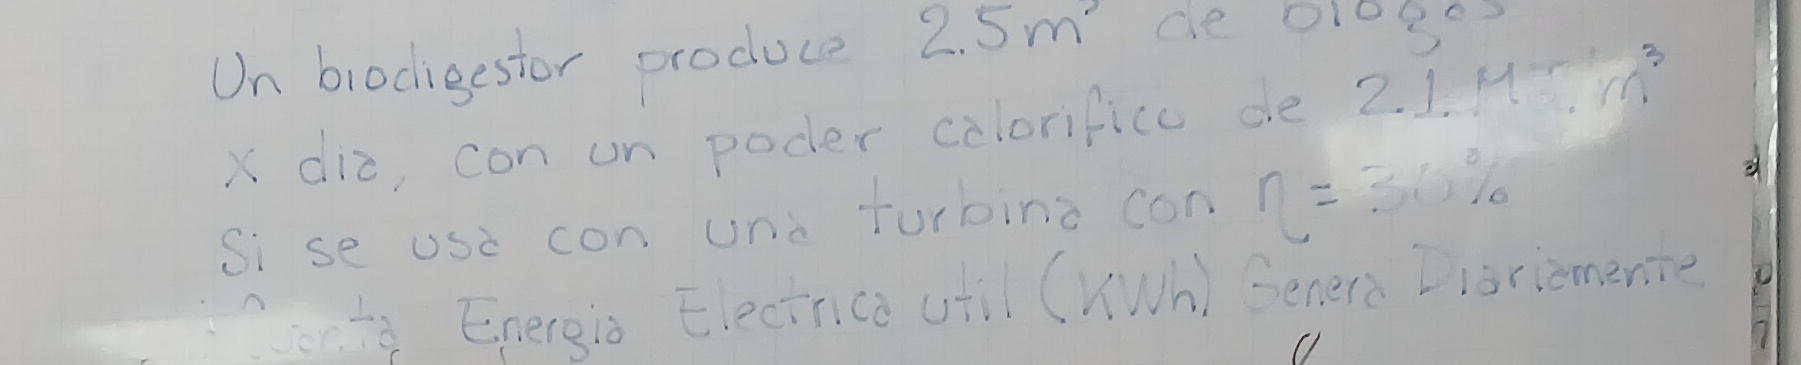 Un biodigestor produce 2.5m³ de biogas
x dia, con un poder calorifico de 2.1 MJ. m³
Si se usa con una turbina con η = 30%
Energia Electrica util (KWh) Genera Diariamente